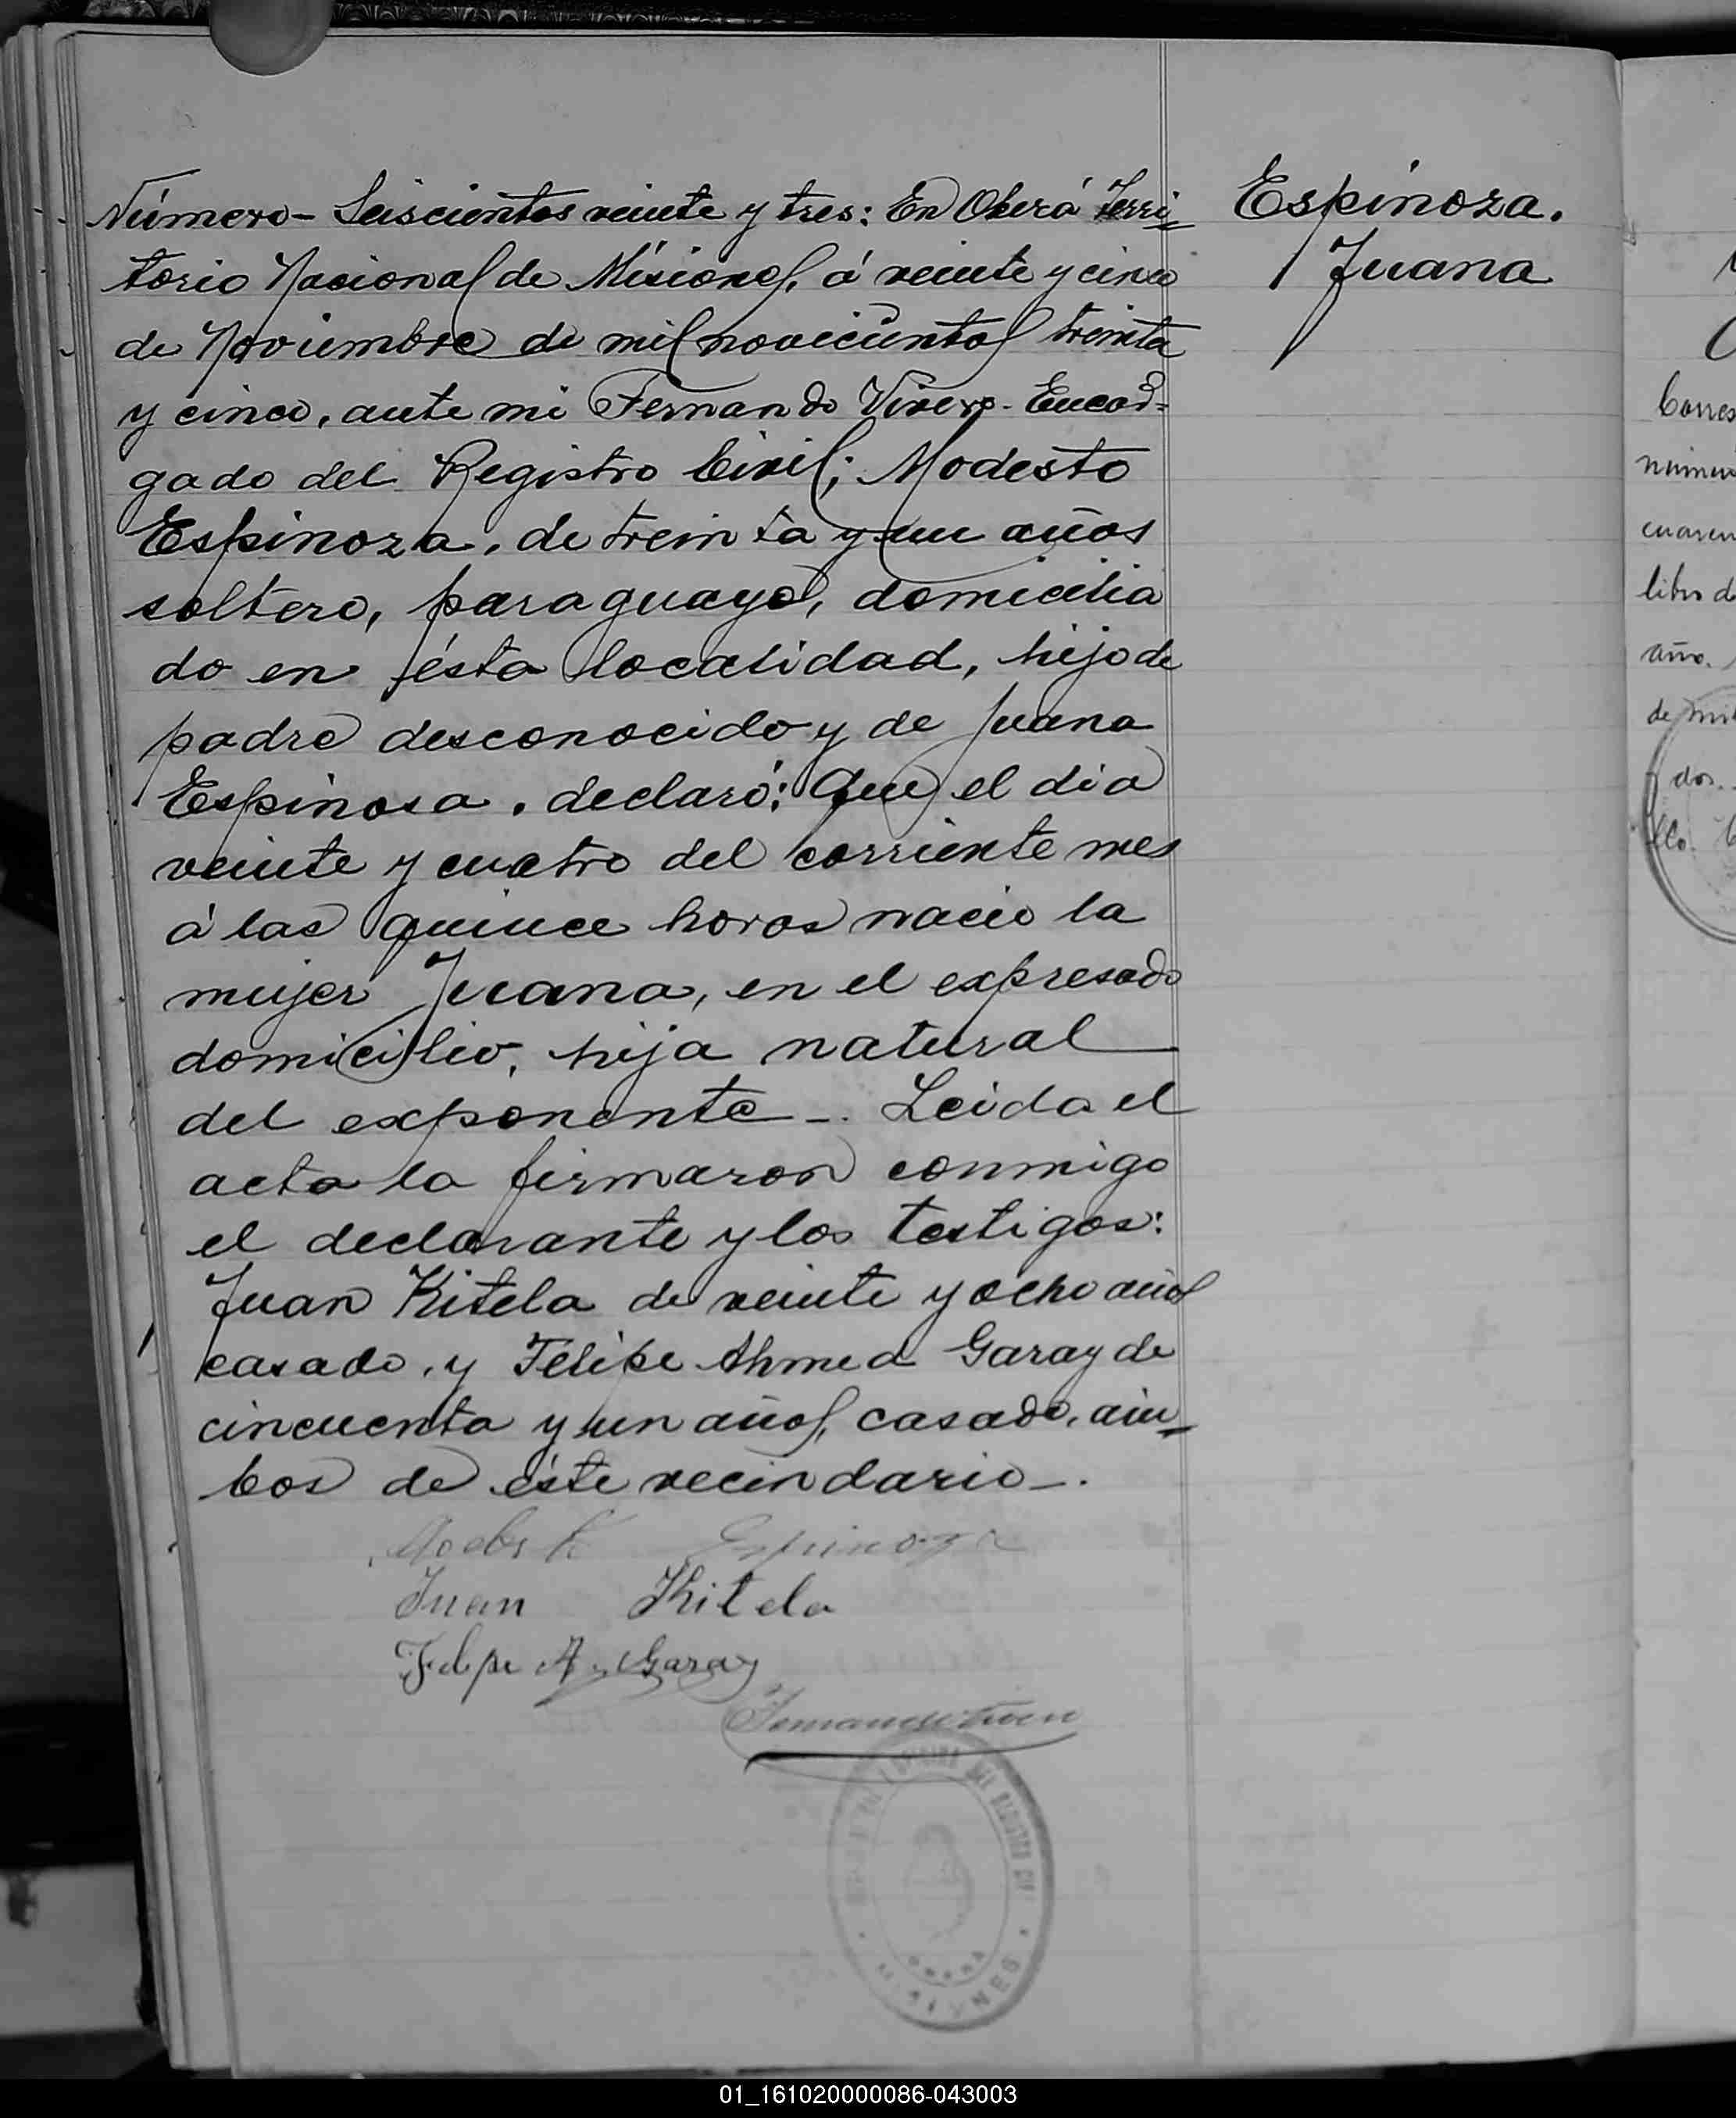 Número - Seiscientos veinte y tres: En Oberá Terri=
torio Nacional de Misiones, á veinte y cinco
de Noviembre de mil novecientos treinta
y cinco, ante mi Fernando Vivero - Encar=
gado del Registro Civil; Modesto
Espinoza, de treinta y un años
soltero, paraguayo, domicilia
do en ésta localidad, hijo de
padre desconocido y de Juana
Espinosa. declaró: Que el dia
veinte y cuatro del corriente mes
á las quince horas nacio la
mujer Juana, en el expresado
domicilio, hija natural
del exponente -. Leida el
acta la firmaron conmigo
el declarante y los testigos:
Juan Kitela de veinte y ocho años
casado, y Felipe Ahmed Garay de
cincuenta y un años, casado, am=
bos de éste vecindario -.
Espinoza
Juan Khitela
Felipe A. Garay
OFICINA DEL REGISTRO CIV
OBERA
MISIONES
Espinoza.
Juana
Corres
numer
cuaren
libro d
año.
de mil
dos.
01_161020000086-043003